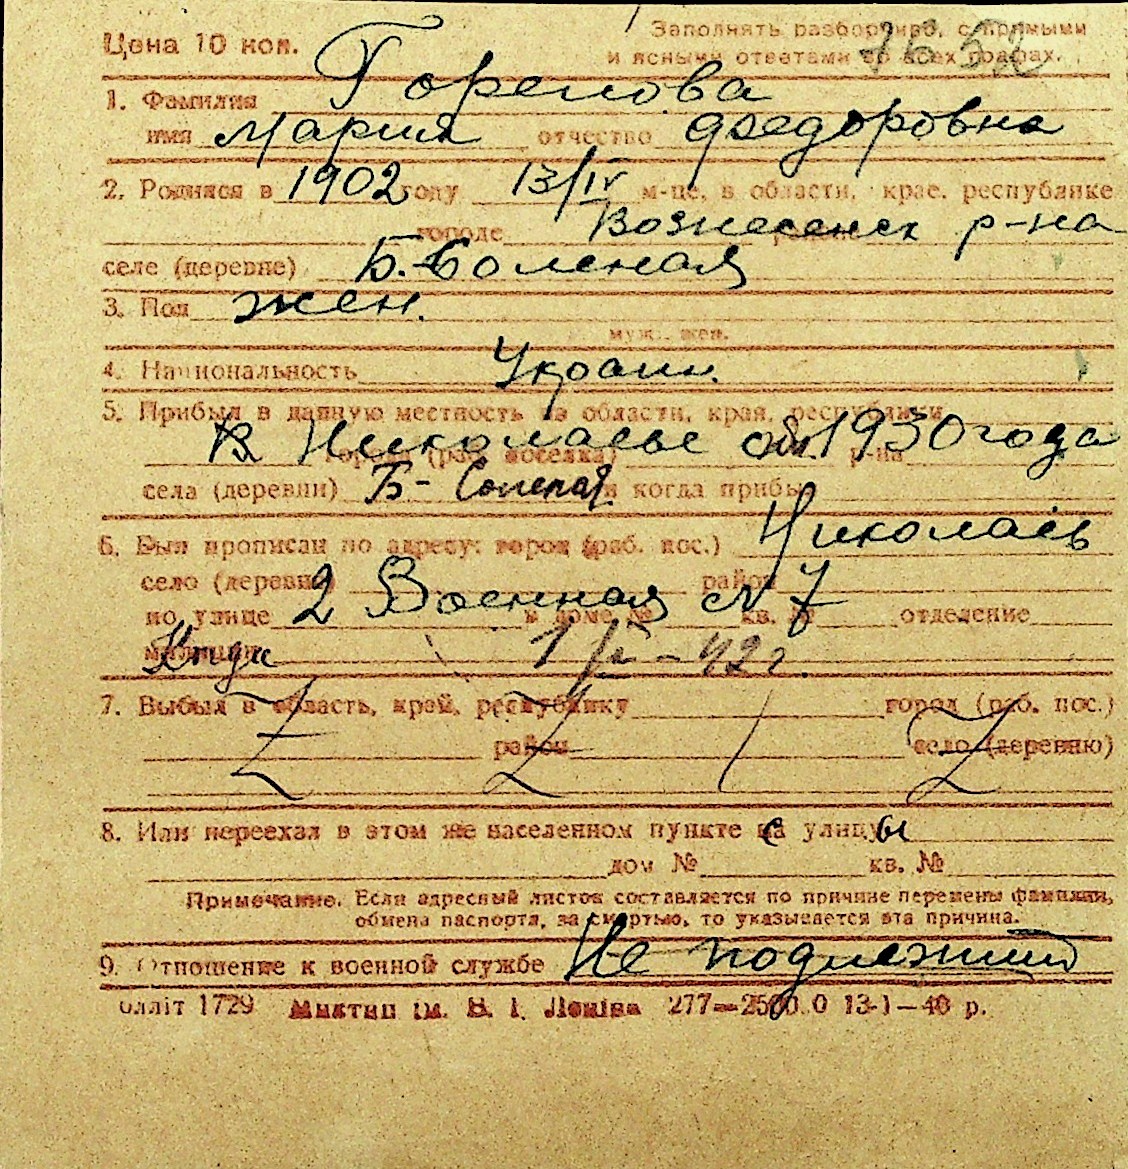 Цена 10 коп.
Заполнять разборчиво, с прямыми
и ясными ответами во всех графах.
1. Фамилия Горелова
имя Мария отчество Федоровна
2. Родился в 1902 году 13/IV м-це, в области, крае, республике
городе Вознесенск р-на
селе (деревне) Б.-Соленая
3. Пол жен.
муж., жен.
4. Национальность Украин.
5. Прибыл в данную местность из области, края, республики
В Николаеве с 1930 года
города (раб. поселка) р-на
села (деревни) Б-Соленая и когда прибыл
6. Был прописан по адресу: город (раб. пос.) Николаев
село (деревне) район
по улице 2 Военная № 7 в доме № кв. № отделение
милиции 1/II-42 г.
7. Выбыл в область, край, республику город (раб. пос.)
район село (деревню)
8. Или переехал в этом же населенном пункте с улицы
дом № кв. №
Примечание. Если адресный листок составляется по причине перемены фамилии,
обмена паспорта, за смертью, то указывается эта причина.
9. Отношение к военной службе Не подлежит
олліт 1729 Миктип ім. В. І. Леніна 277—2500.0 13-1—40 р.